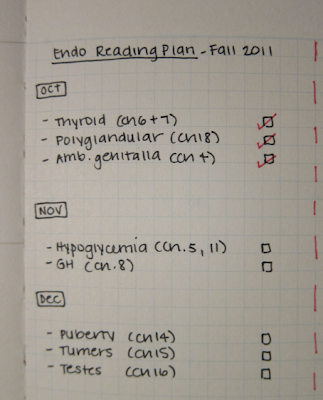 Endo Reading Plan - Fall 2011
OCT
- Thyroid (ch6+7)
- Polyglandular (ch18)
- Amb. genitalia (ch 4)
NOV
- Hypoglycemia (ch.5, 11)
- GH (ch.8)
Dec
- Puberty (ch14)
- Tumers (ch15)
- Testes (ch16)